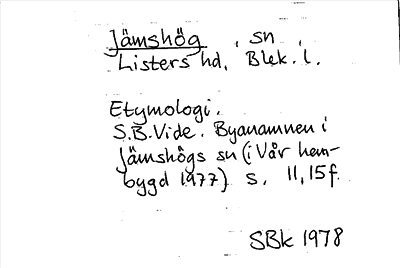 Jämshög, sn,
Listers hd, Blek. l.
Etymologi.
S.B.Vide. Byanamnen i
Jämshögs sn (i Vår hem-
bygd 1977) s. 11,15f.
SBk 1978